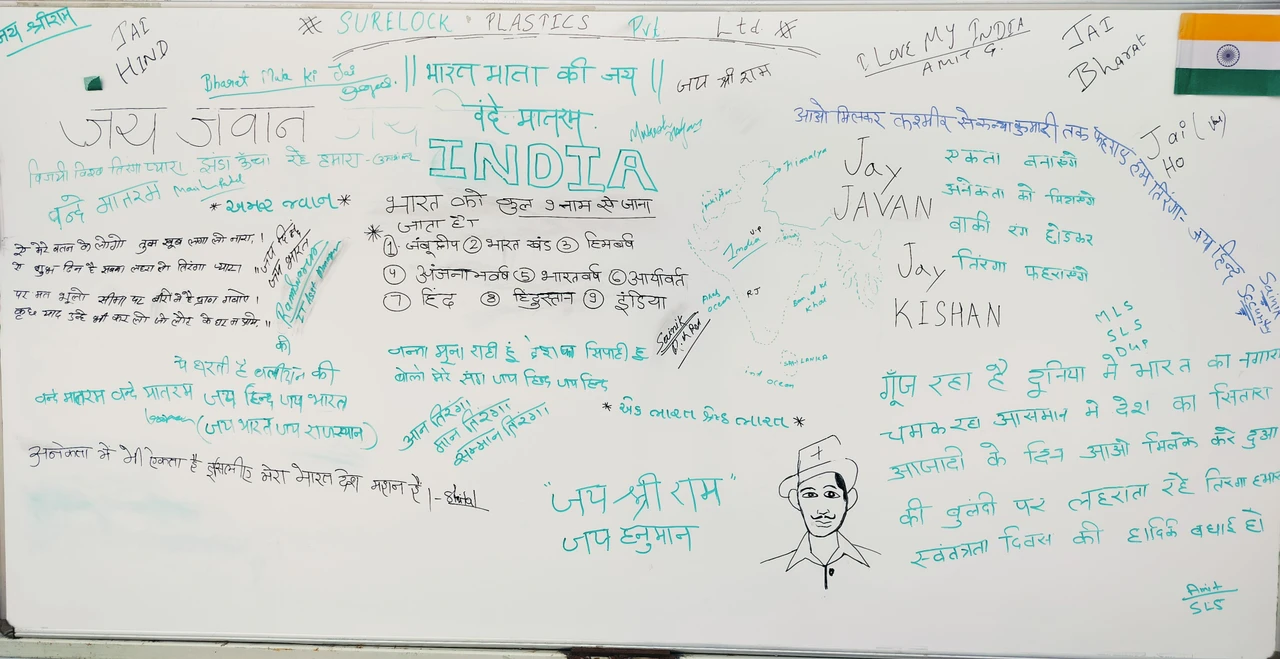 जय श्रीराम
JAI
HIND
* SURELOCK PLASTICS Pvt Ltd. *
I LOVE MY INDIA
AMIT G.
JAI
Bharat
Bharat Mata ki Jai
|| भारत माता की जय ||
जय श्री राम
जय जवान जय
वंदे मातरम्
INDIA
विजयी विश्व तिरंगा प्यारा झंडा ऊँचा रहे हमारा -
वन्दे मातरम
* અમર જવાન *
आओ मिलकर कश्मीर से कन्याकुमारी तक फहराए हम तिरंगा - जय हिन्द
Jai
HO
Jay
JAVAN
Jay
KISHAN
एकता बनाएंगे
अनेकता को मिटाएंगे
बाकी रंग छोडकर
तिरंगा फहराएंगे
* भारत को कुल 9 नाम से जाना
जाता है।
① जंबूद्वीप ② भारत खंड ③ हिमवर्ष
④ अंजनाभवर्ष ⑤ भारतवर्ष ⑥ आर्यावर्त
⑦ हिंद ⑧ हिंदुस्तान ⑨ इंडिया
ऐ मेरे वतन के लोगो तुम खूब लगा लो नारा।
ये शुभ दिन है हम सब का लहरा लो तिरंगा प्यारा
पर मत भूलो सीमा पर वीरो ने है प्राण गवाए।
कुछ याद उन्हे भी कर लो जो लौट के घर न आये।"
"जय हिन्द
जय भारत"
Himalya
India
U.P
RJ
Arab
ocean
SRI LANKA
ind ocean
Sainik
Security
MLS
SLS
DUP
की
ये धरती है बलीदान की
वन्दे मातरम वन्दे मातरम जय हिन्द जय भारत
(जय भारत जय राजस्थान)
देश का सिपाही हु
बोलो मेरे संग जय हिन्द जय हिन्द
आन तिरंगा
मान तिरंगा
सम्मान तिरंगा
* એક ભારત શ્રેષ્ઠ ભારત *
अनेकता में भी एकता है इसलिए मेरा भारत देश महान है। -
"जय श्री राम"
जय हनुमान
गूँज रहा है दुनिया मे भारत का नगारा
चमक रहा आसमान मे देश का सितारा
आजादी के दिन आओ मिलके करे दुआ
की बुलंदी पर लहराता रहे तिरंगा हमारा
स्वंतत्रता दिवस की हार्दिक बधाई हो
Amit
SLS